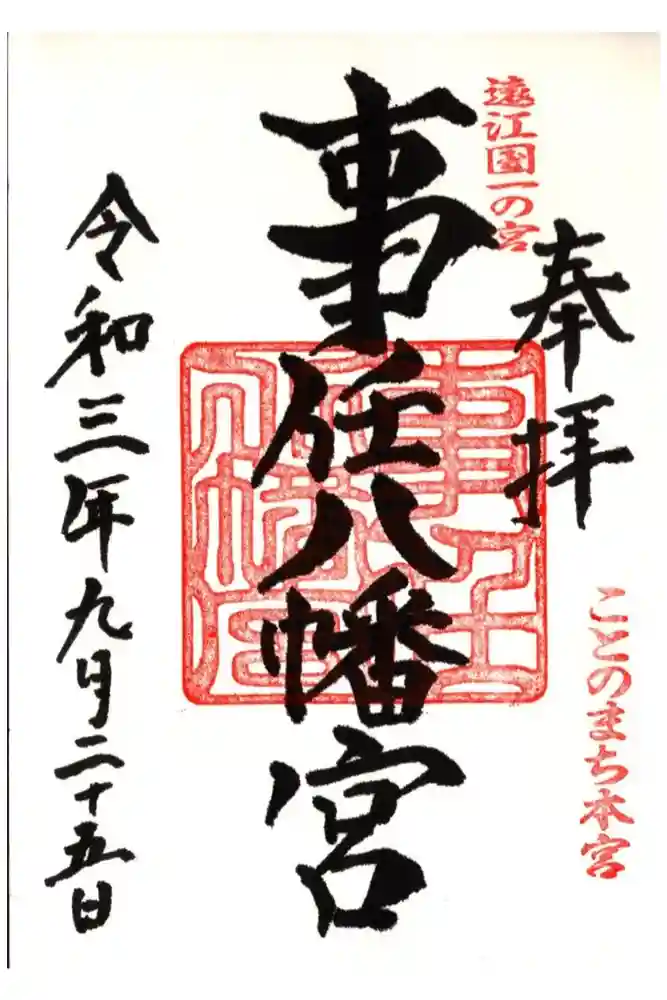 遠江國一の宮
奉拝
ことのまち本宮
事任八幡宮
令和三年九月二十五日